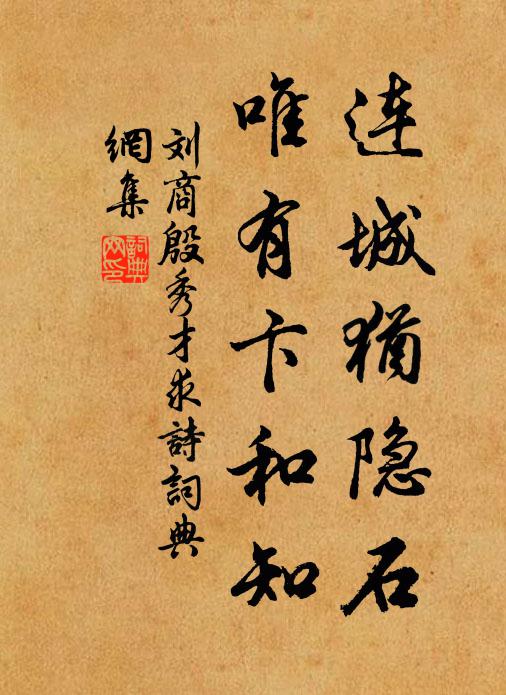 连城犹隐石
唯有卞和知
刘商殷秀才求詩詞典
網集
詞典
网印